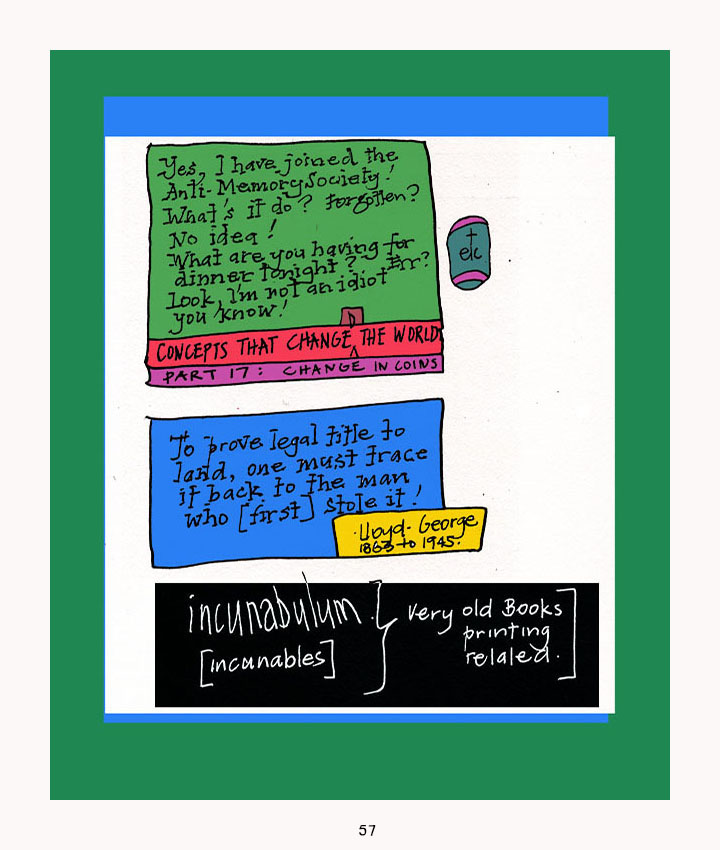 Yes, I have joined the
Anti-Memory Society!
What's it do? Forgotten?
No idea!
What are you having for
dinner tonight? Err?
Look, I'm not an idiot
you know!
etc
D
CONCEPTS THAT CHANGE THE WORLD
PART 17: CHANGE IN COINS
To prove legal title to
land, one must trace
it back to the man
who [first] stole it!
Lloyd-George
1863 to 1945.
incunabulum
[incunables]
very old Books
printing
related.
57